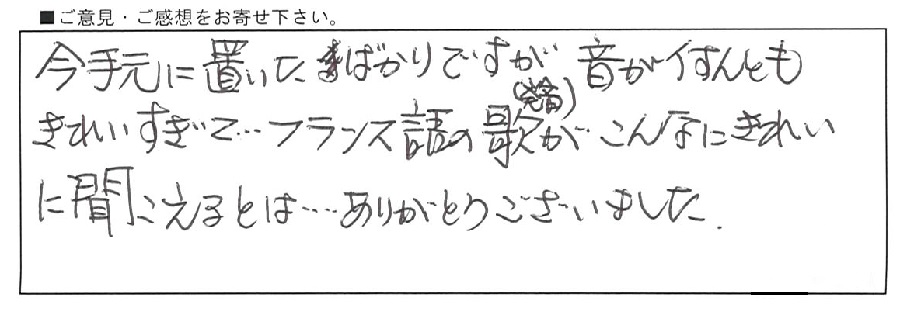 ■ご意見・ご感想をお寄せ下さい。
今手元に置いたばかりですが 音が何とも
(発音)
きれいすぎて…フランス語の歌が こんなにきれい
に聞こえるとは…ありがとうございました.